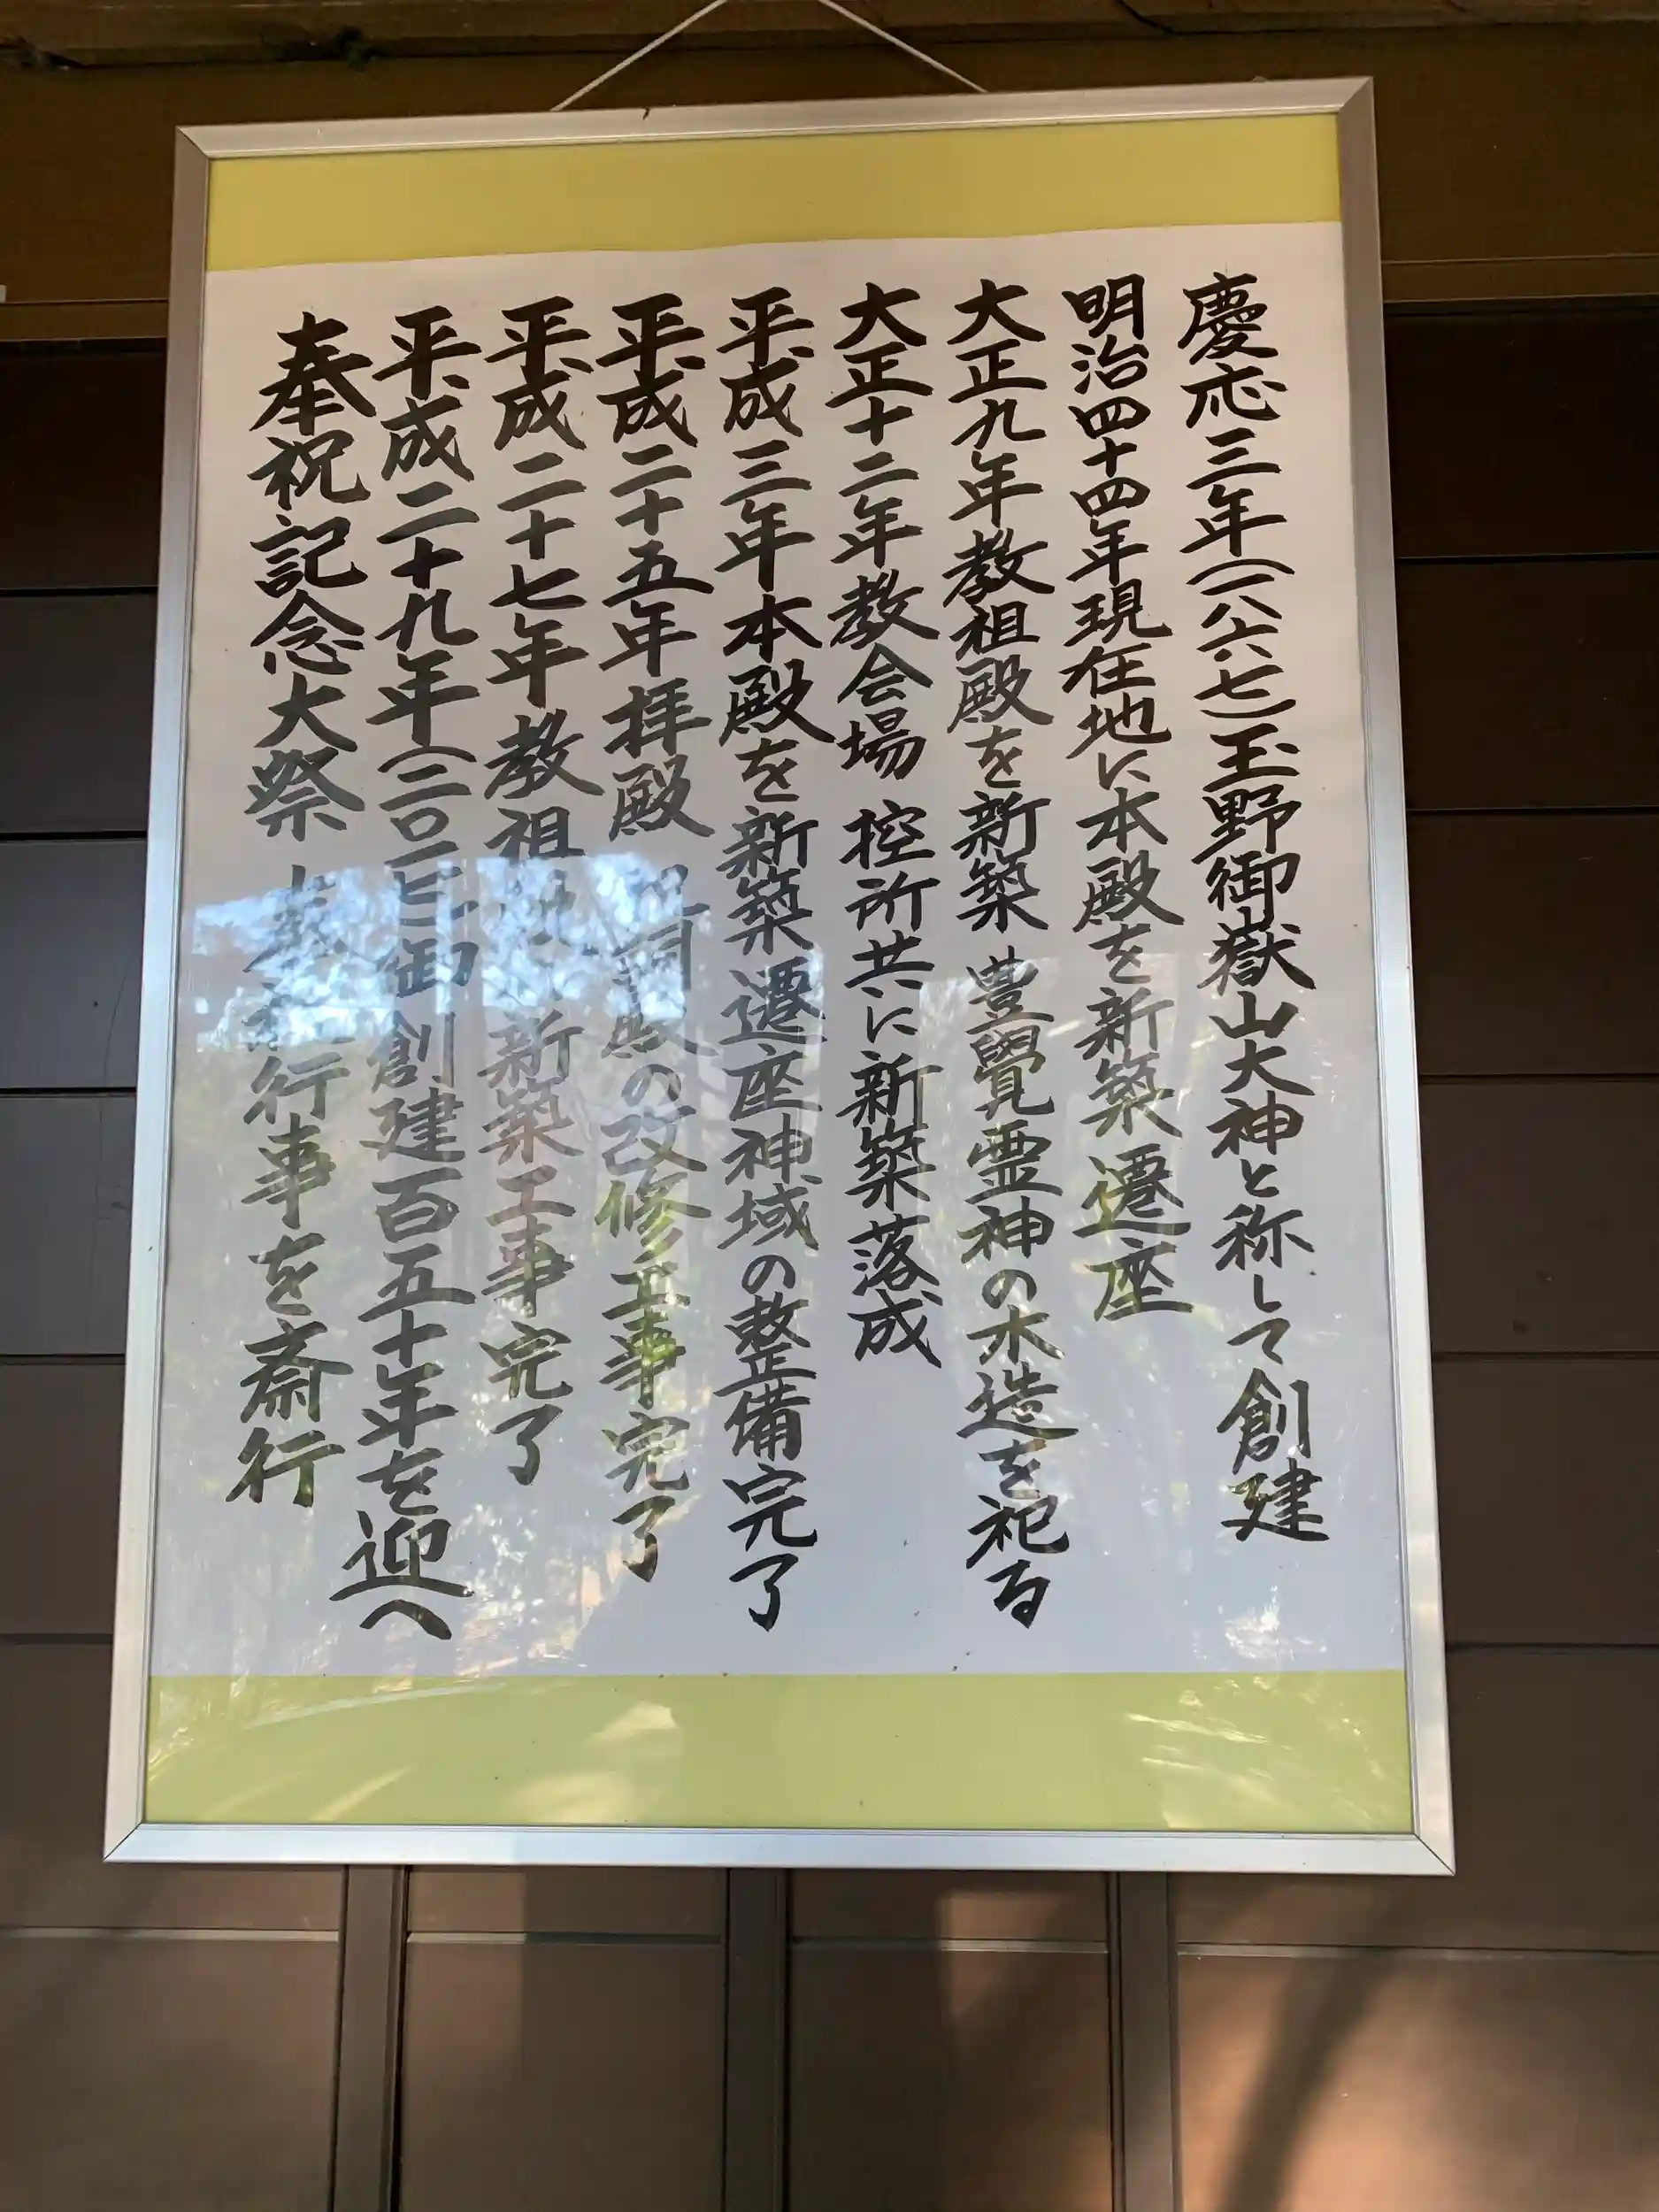 慶応三年(一八六七)玉野御嶽山大神と称して創建
明治四十四年現在地に本殿を新築遷座
大正九年教祖殿を新築 豊覺霊神の木造を祀る
大正十二年教会場 控所共に新築落成
平成三年本殿を新築遷座神域の整備完了
平成二十五年拝殿 祝詞殿の改修工事完了
平成二十七年教祖 新築工事完了
平成二十九年(二〇一七)御創建百五十年を迎へ
奉祝記念大祭 行事を斎行